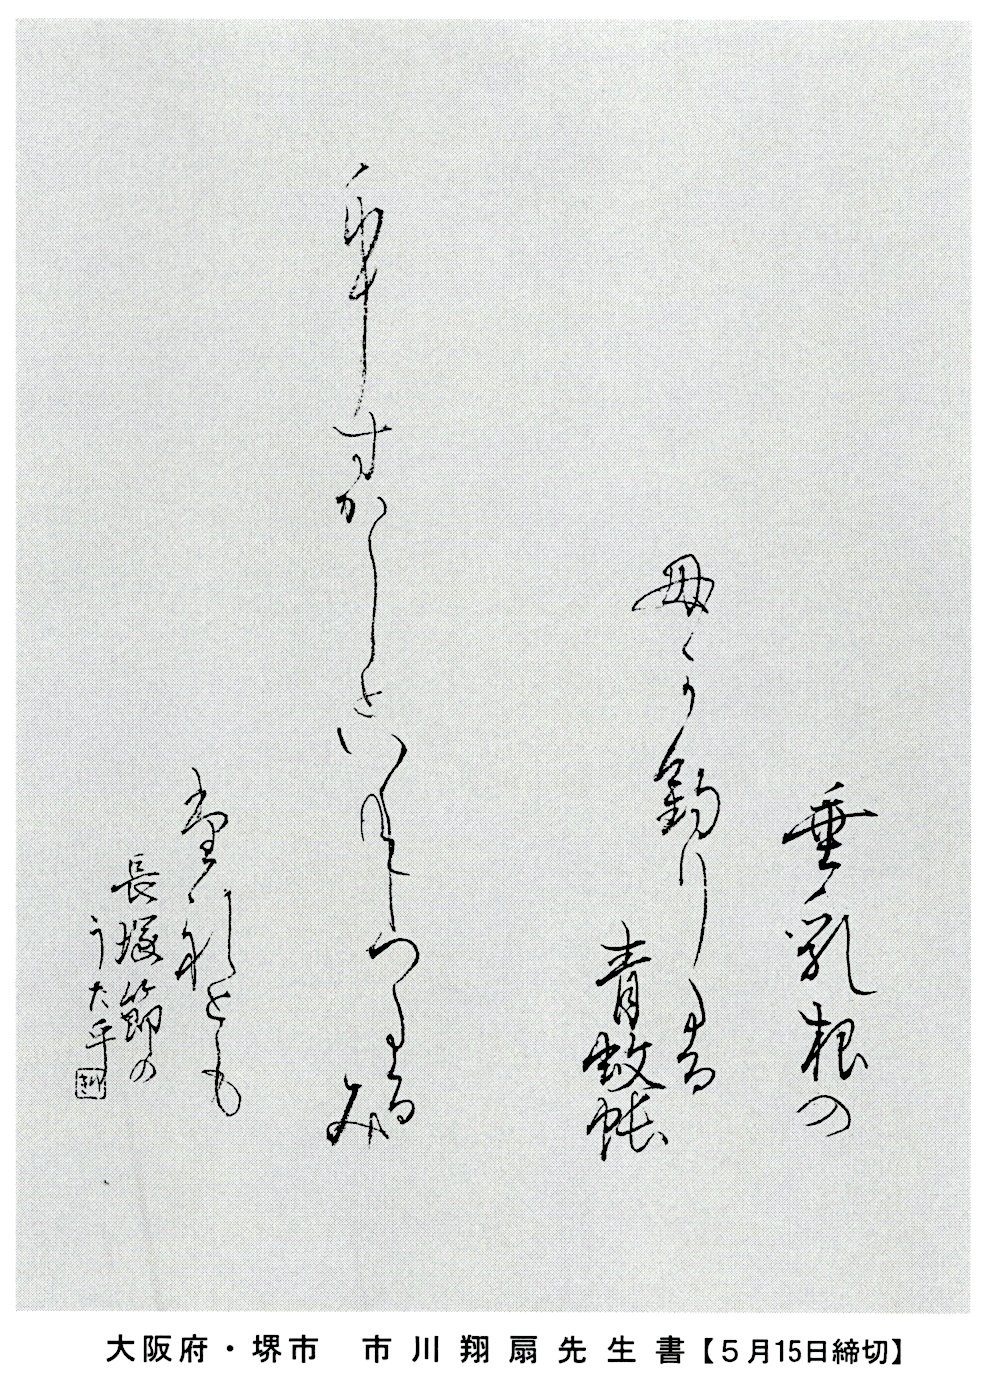 垂乳根の
母か釣りたる
青蚊帳
をすかしといねつたる
み
たれとも
長塚節の
うた乎
大阪府・堺市　市川翔扇先生書【5月15日締切】